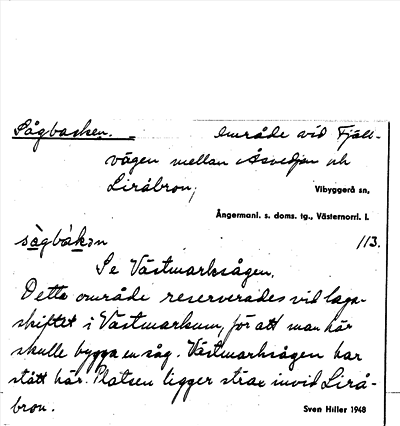 Sågbacken. Område vid Fjäll-
vägen mellan Åsvedjan och
Liråbron,
Vibyggerå sn,
Ångermanl. s. doms. tg., Västernorrl. l.
sågbakən 113.
Se Västmarksågen.
Detta område reserverades vid laga-
skiftet i Västmarkum, för att man här
skulle bygga en såg. Västmarksågen har
stått här. Platsen ligger strax invid Lirå-
bron.
Sven Hiller 1948